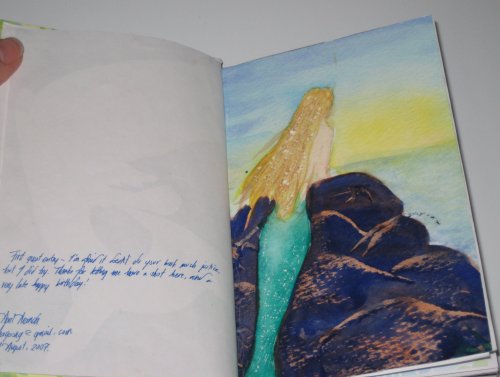 First year away – I'm afraid it doesn't do your book much justice,
but I did try. Thanks for letting me have a shot here, and a
very late happy birthday!
@ gmail.com
August, 2007.